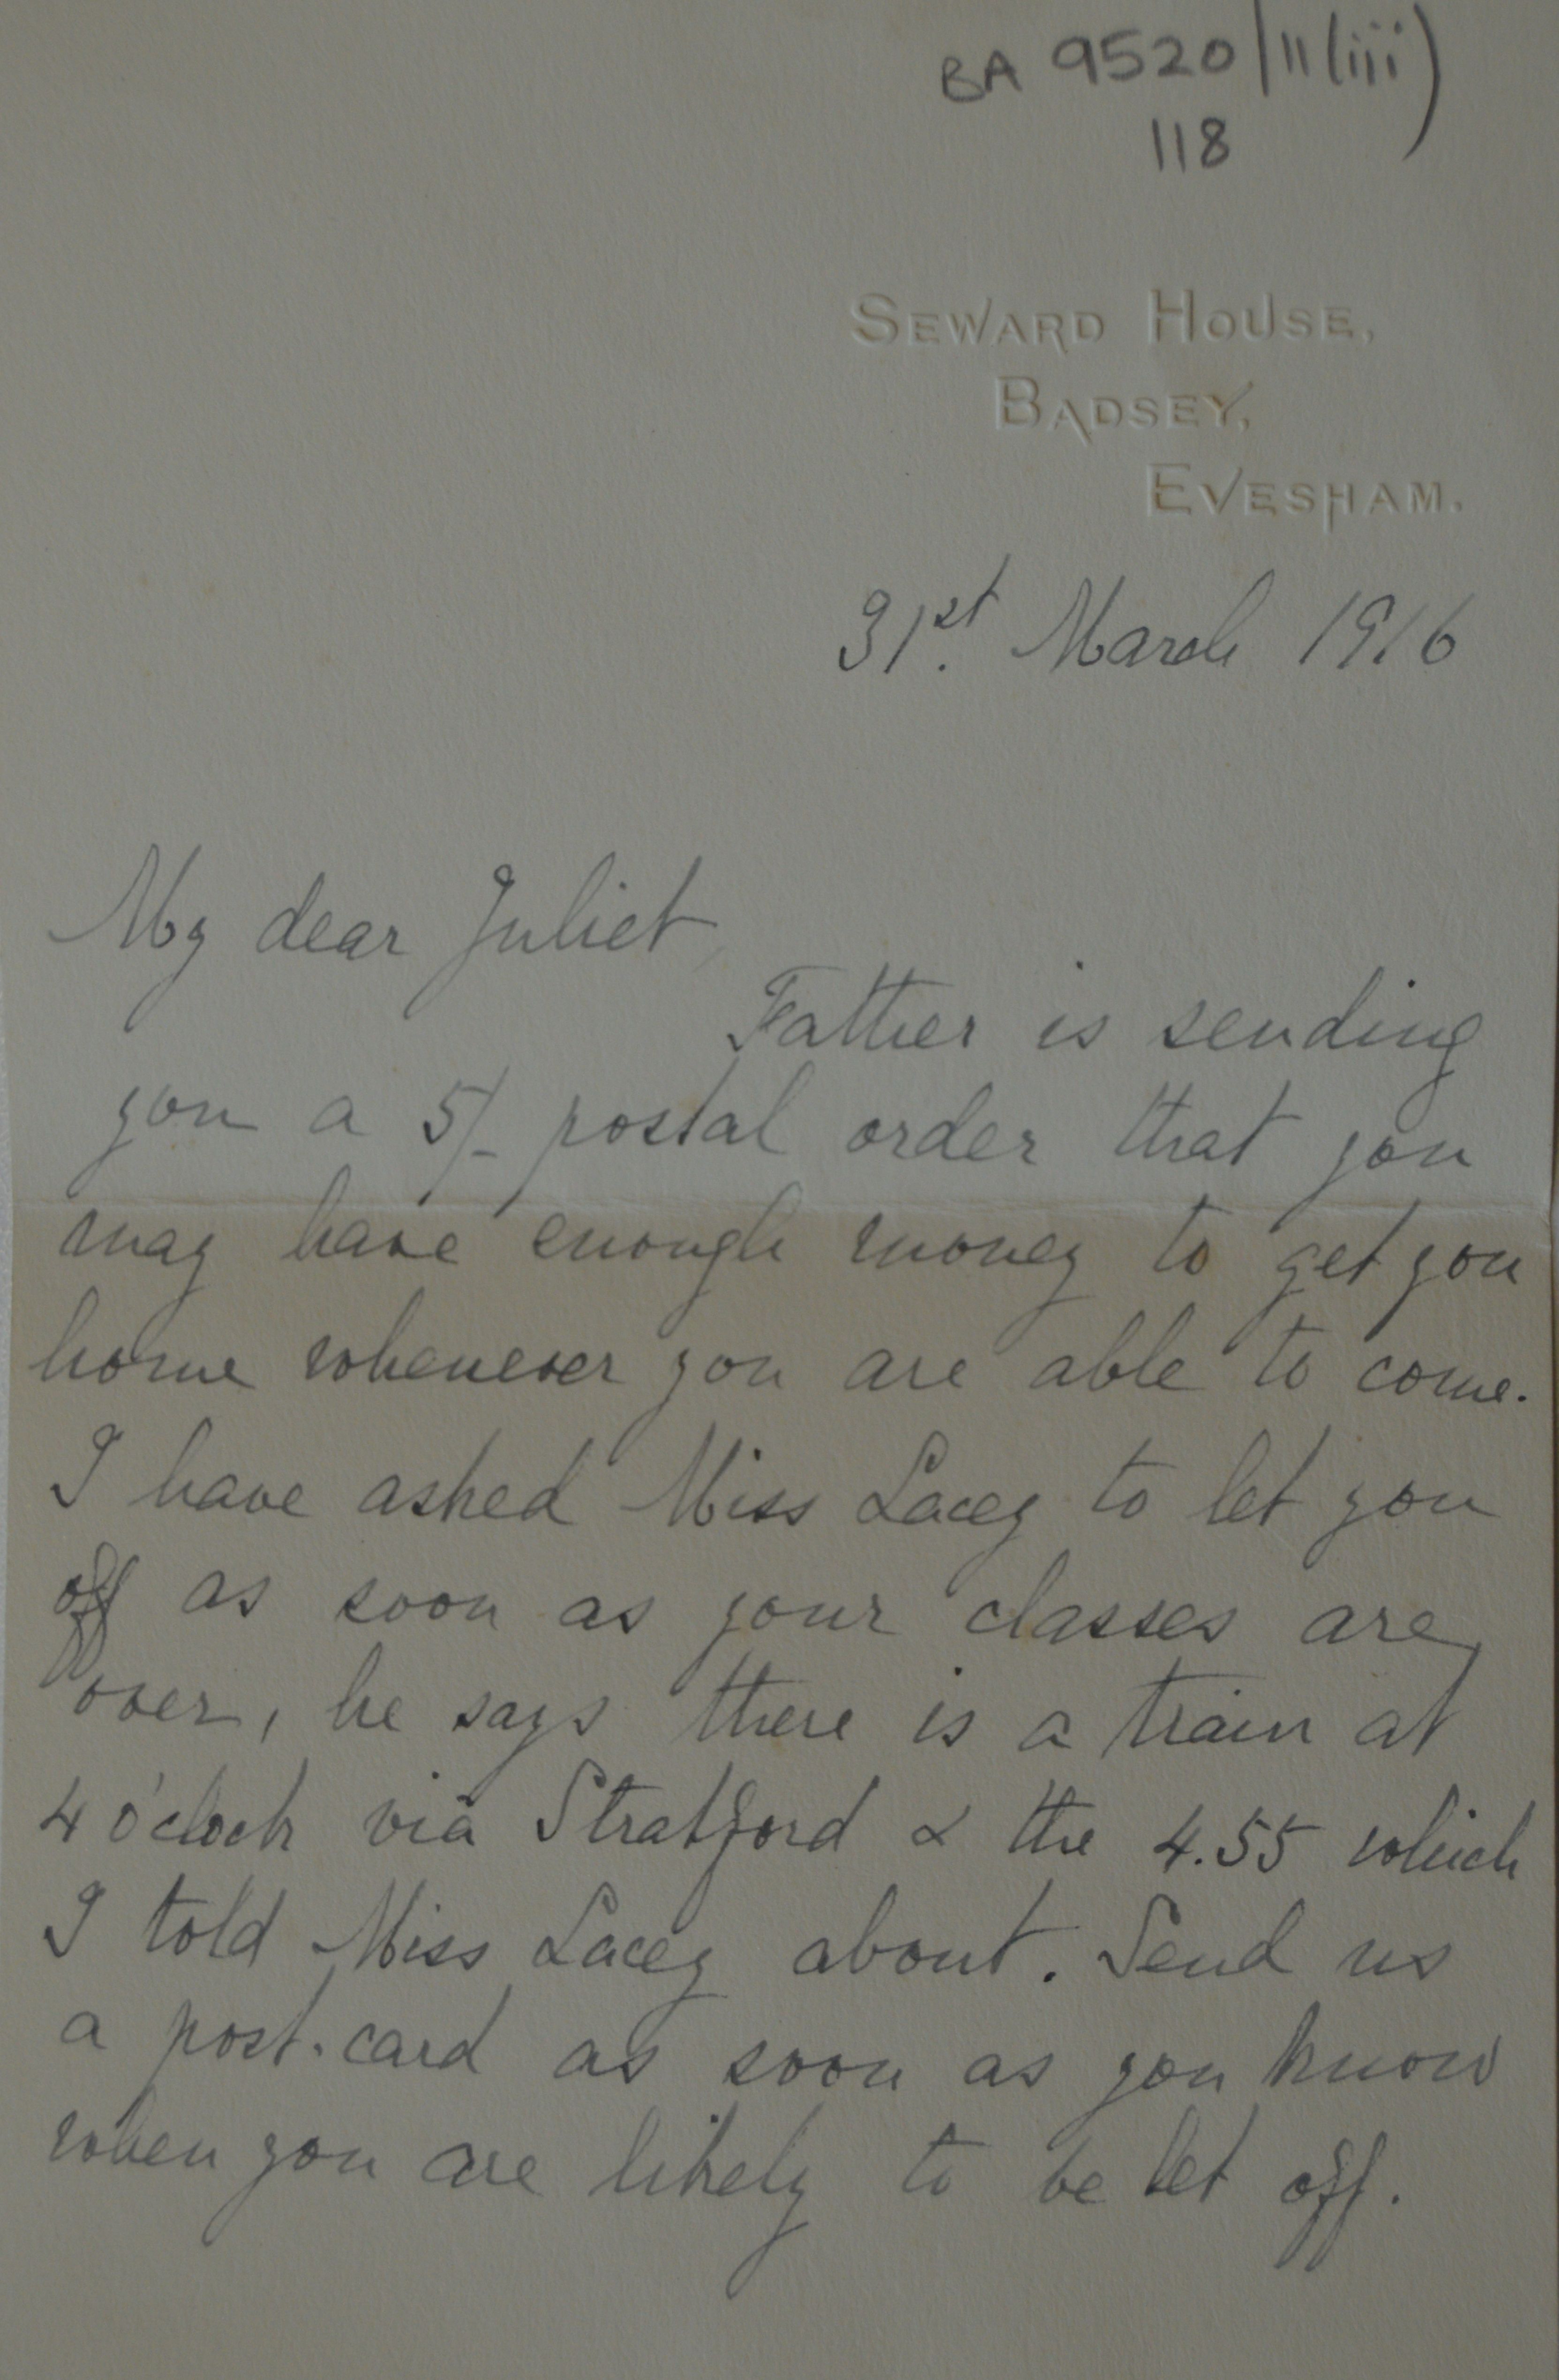 BA 9520/11(iii)
118
SEWARD HOUSE,
BADSEY,
EVESHAM.
31st. March 1916
My dear Juliet,
Father is sending
you a 5/- postal order that you
may have enough money to get you
home whenever you are able to come.
I have asked Miss Lacey to let you
off as soon as your classes are
over, he says there is a train at
4 o'clock via Stratford & the 4.55 which
I told Miss Lacey about. Send us
a post-card as soon as you know
when you are likely to be let off.